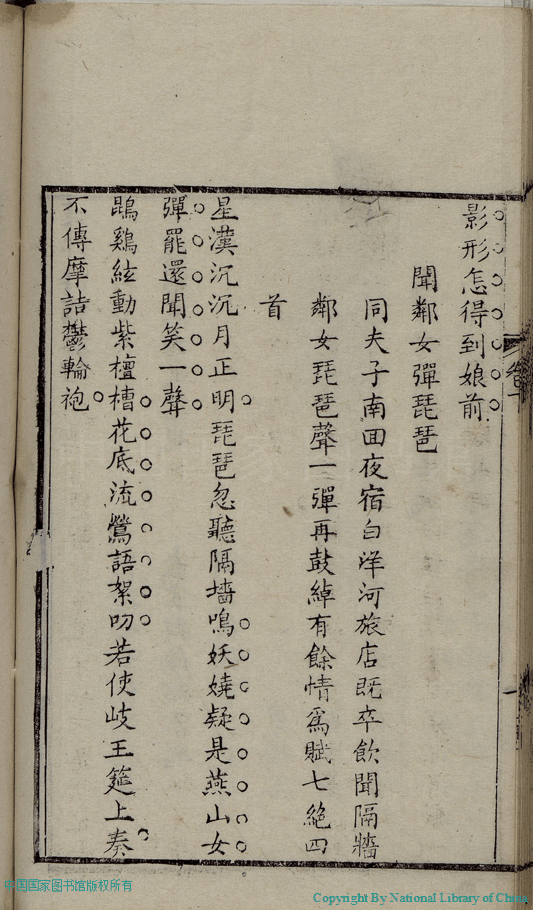 影形怎得到娘前
聞鄰女彈琵琶
同夫子南回夜宿白洋河旅店既卒飲聞隔牆
鄰女琵琶聲一彈再鼓綽有餘情爲賦七絶四
首
星漢沉沉月正明琵琶忽聽隔墻鳴妖嬈疑是燕山女
彈罷還聞笑一聲
鵾鷄絃動紫檀槽花底流鶯語絮叨若使岐王筵上奏
不傳摩詰鬱輪袍
中国国家图书馆版权所有
Copyright By National Library of China